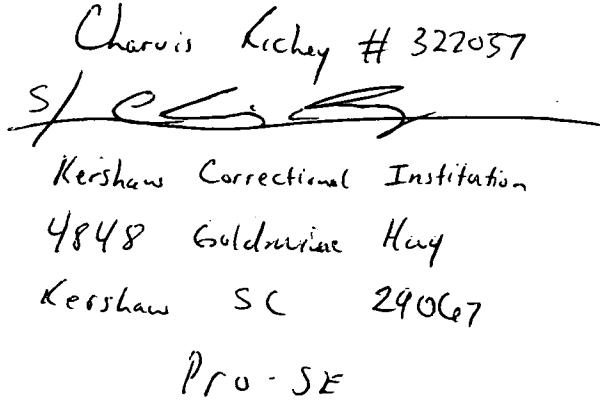 Charvis Richey # 322057
S/
Kershaw Correctional Institution
4848 Goldmine Hwy
Kershaw SC 29067
Pro-SE